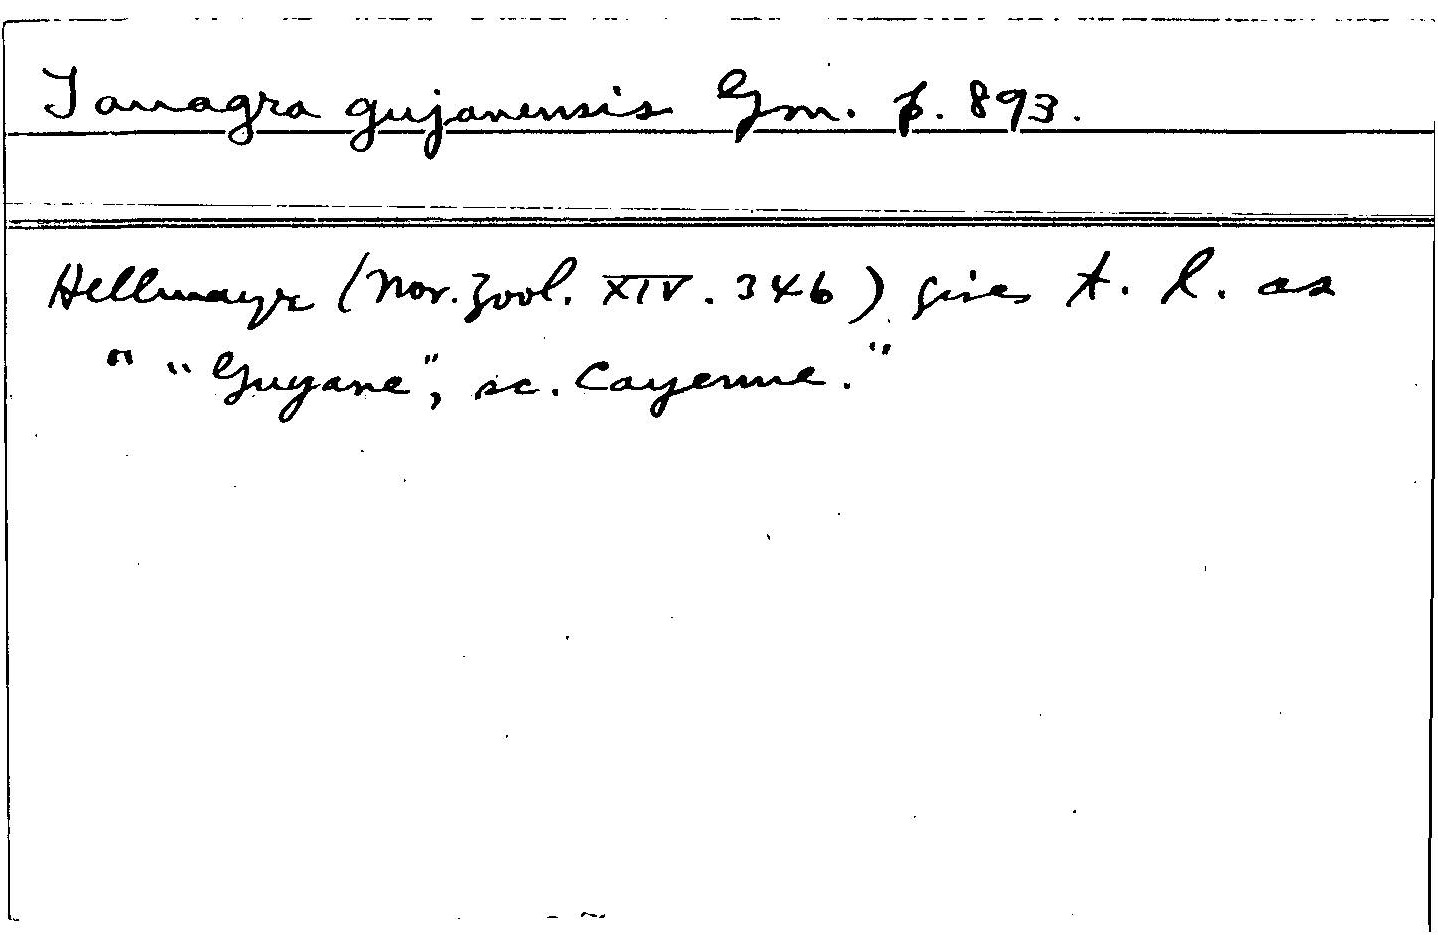 Tanagra gujanensis Gm. p. 893.
Hellmayr (Nov. Zool. XIV. 346) gives t. l. as
" "Guyane", sc. Cayenne."